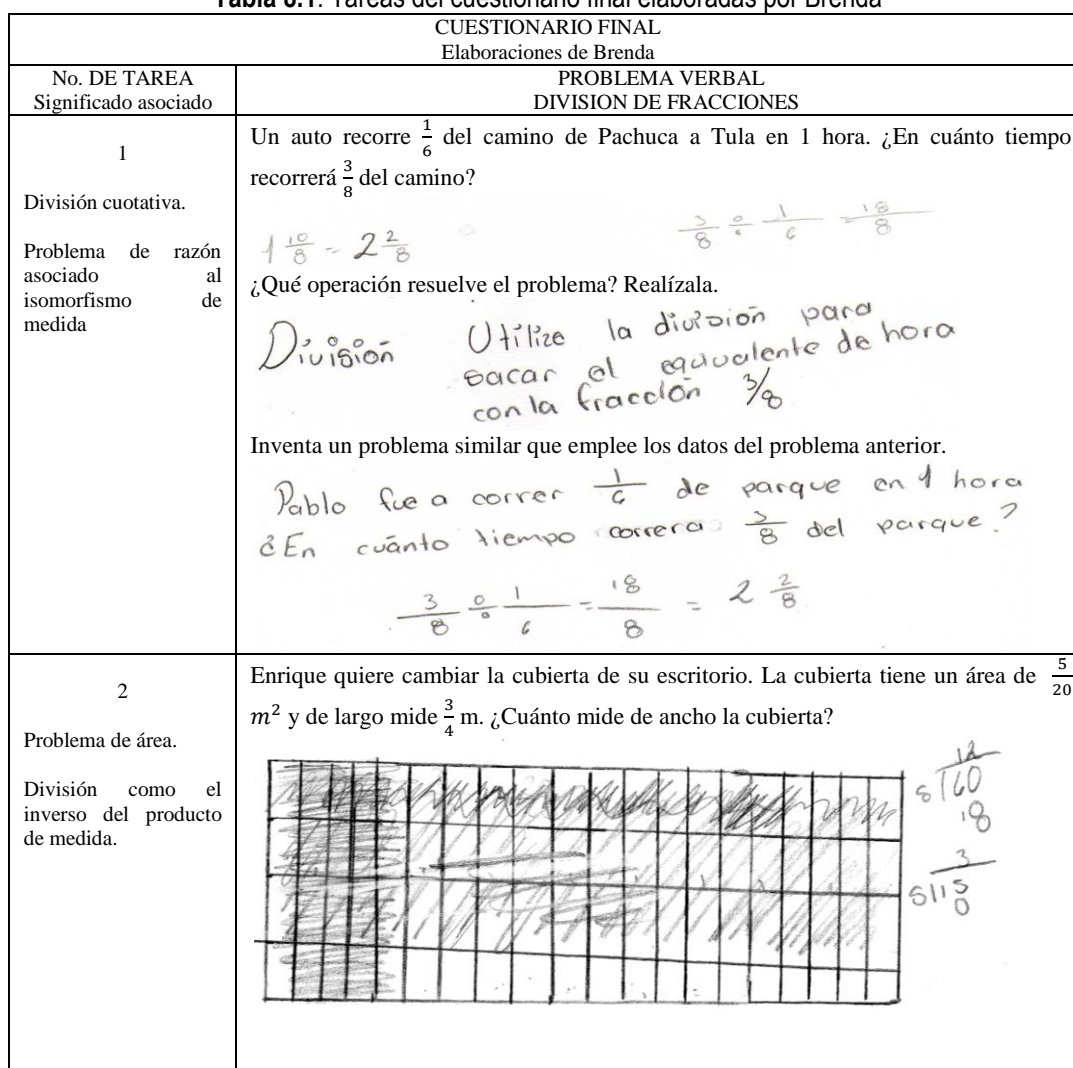 Tabla 6.1: Tareas del cuestionario final elaboradas por Brenda
CUESTIONARIO FINAL
Elaboraciones de Brenda
No. DE TAREA
Significado asociado
PROBLEMA VERBAL
DIVISION DE FRACCIONES
1
División cuotativa.
Problema de razón
asociado al
isomorfismo de
medida
Un auto recorre 1/6 del camino de Pachuca a Tula en 1 hora. ¿En cuánto tiempo
recorrerá 3/8 del camino?
1 10/8 = 2 2/8
3/8 ÷ 1/6 = 18/8
¿Qué operación resuelve el problema? Realízala.
División
Utilize la división para
sacar el equivalente de hora
con la fracción 3/8
Inventa un problema similar que emplee los datos del problema anterior.
Pablo fue a correr 1/6 de parque en 1 hora
¿En cuánto tiempo correra 3/8 del parque?
3/8 ÷ 1/6 = 18/8 = 2 2/8
2
Problema de área.
División como el
inverso del producto
de medida.
Enrique quiere cambiar la cubierta de su escritorio. La cubierta tiene un área de 5/20
m² y de largo mide 3/4 m. ¿Cuánto mide de ancho la cubierta?
12
5 60
3
5 15
0